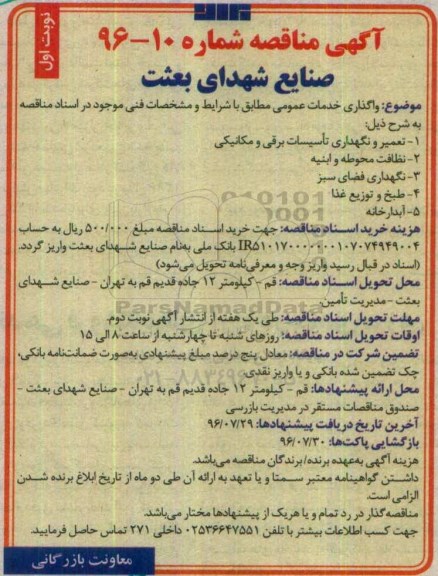 نوبت اول
آگهی مناقصه شماره ۱۰-۹۶
صنایع شهدای بعثت
موضوع: واگذاری خدمات عمومی مطابق با شرایط و مشخصات فنی موجود در اسناد مناقصه
به شرح ذیل:
۱- تعمیر و نگهداری تأسیسات برقی و مکانیکی
۲- نظافت محوطه و ابنیه
۳- نگهداری فضای سبز
۴- طبخ و توزیع غذا
۵- آبدارخانه
هزینه خرید اسناد مناقصه: جهت خرید اسناد مناقصه مبلغ ۵۰۰/۰۰۰ ریال به حساب
بانک ملی به‌نام صنایع شهدای بعثت واریز گردد.
(اسناد در قبال رسید واریز وجه و معرفی‌نامه تحویل می‌شود)
محل تحویل اسناد مناقصه: قم - کیلومتر ۱۲ جاده قدیم قم به تهران - صنایع شهدای
بعثت - مدیریت تأمین.
مهلت تحویل اسناد مناقصه: طی یک هفته از انتشار آگهی نوبت دوم.
اوقات تحویل اسناد مناقصه: روزهای شنبه تا چهارشنبه از ساعت ۸ الی ۱۵
تضمین شرکت در مناقصه: معادل پنج درصد مبلغ پیشنهادی به‌صورت ضمانت‌نامه بانکی،
چک تضمین شده بانکی و یا واریز نقدی.
محل ارائه پیشنهادها: قم - کیلومتر ۱۲ جاده قدیم قم به تهران - صنایع شهدای بعثت -
صندوق مناقصات مستقر در مدیریت بازرسی
آخرین تاریخ دریافت پیشنهادها: ۹۶/۰۷/۲۹
بازگشایی پاکت‌ها: ۹۶/۰۷/۳۰
هزینه آگهی به‌عهده برنده/برندگان مناقصه می‌باشد.
داشتن گواهینامه معتبر سمتا و یا تعهد به ارائه آن طی دو ماه از تاریخ ابلاغ برنده شدن
الزامی است.
مناقصه‌گذار در رد تمام و یا هریک از پیشنهادها مختار می‌باشد.
جهت کسب اطلاعات بیشتر با تلفن ۰۲۵۳۶۶۴۷۵۵۱ داخلی ۲۷۱ تماس حاصل فرمایید.
معاونت بازرگانی